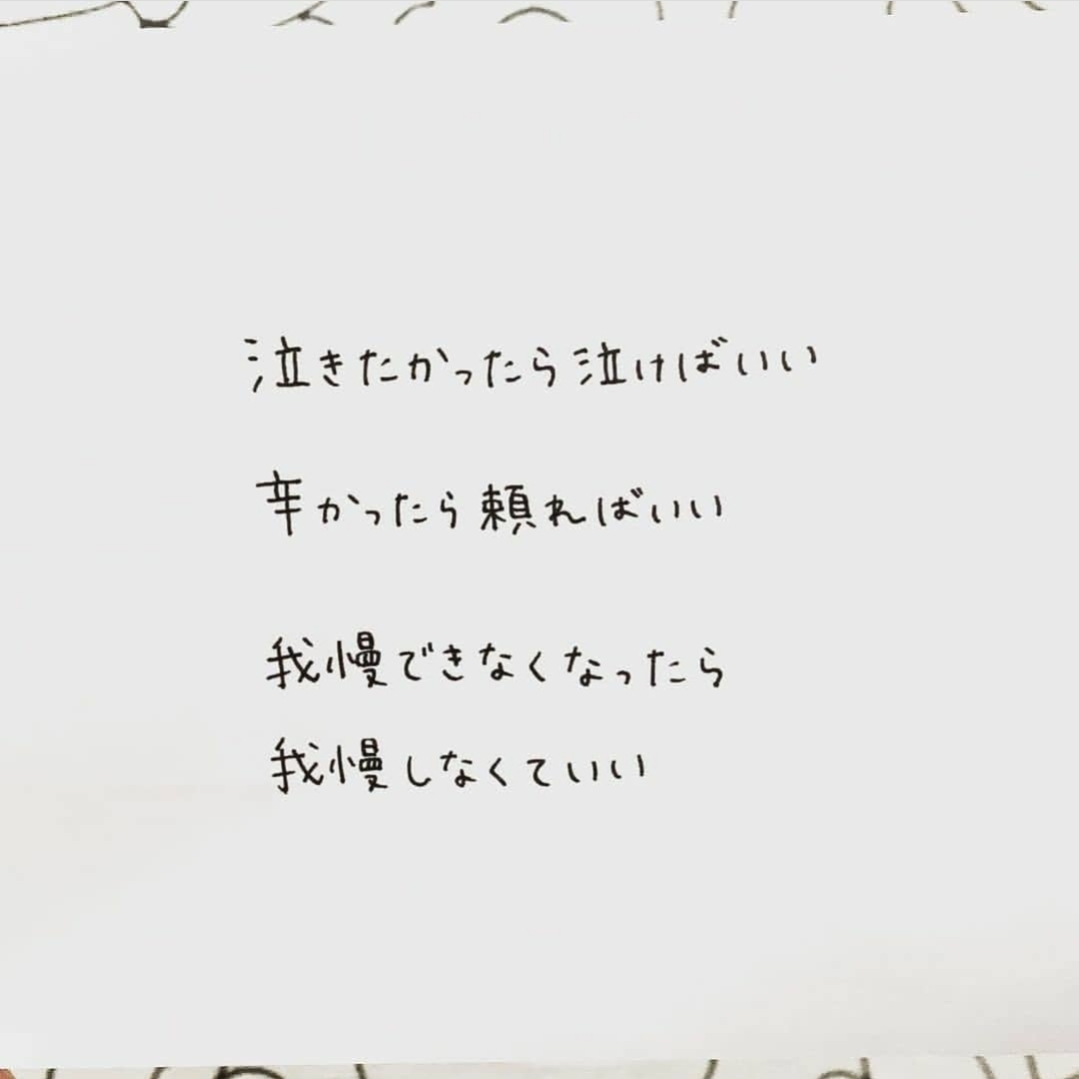 泣きたかったら泣けばいい
辛かったら頼ればいい
我慢できなくなったら
我慢しなくていい